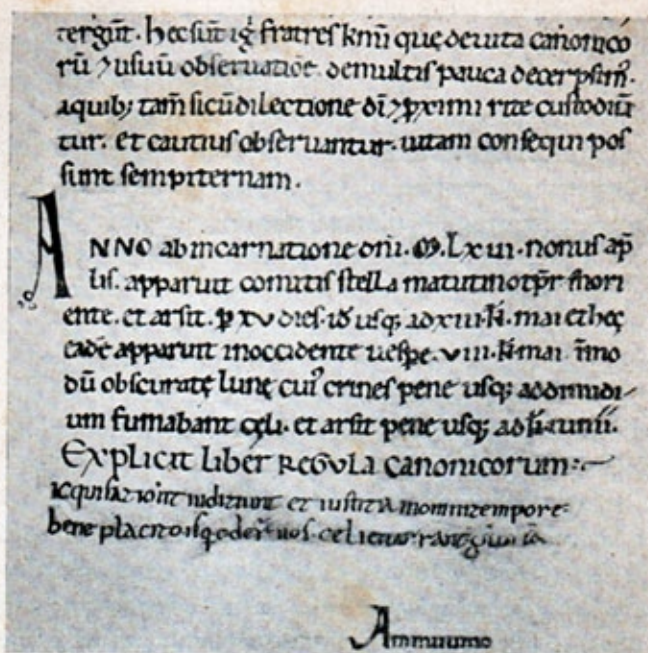 tergūt. hec sūt iḡ fratres km̄i quę de uita canonico
rū ⁊ usuū obseruatiōe de multis pauca decerpsim᷒.
a quib; tam̄ si cū dilectione dī ⁊ ꝓximi rite custodiū
tur. et cautius obseruantur. uitam consequi pos
sunt sempiternam.
ANNO ab incarnatione dn̄i. M̄. Lxvi. nonus ap̄
lis. apparuit comitis stella matutino tp̄r in ori
ente. et arsit. p̱ xv dies. id usq; ad xiii. kl̄. mai et hęc
eadē apparuit in occidente uesꝑe. viii. kl̄ mai. īmo
dū obscuratę lunę cui᷒ crines pene usq; ad dimidi
um fumabant cęli. et arsit pene usq; ad kl̄ iunii.
Explicit liber REGVLA canonicorum:
et iustitia
bene placito
Ammiumo